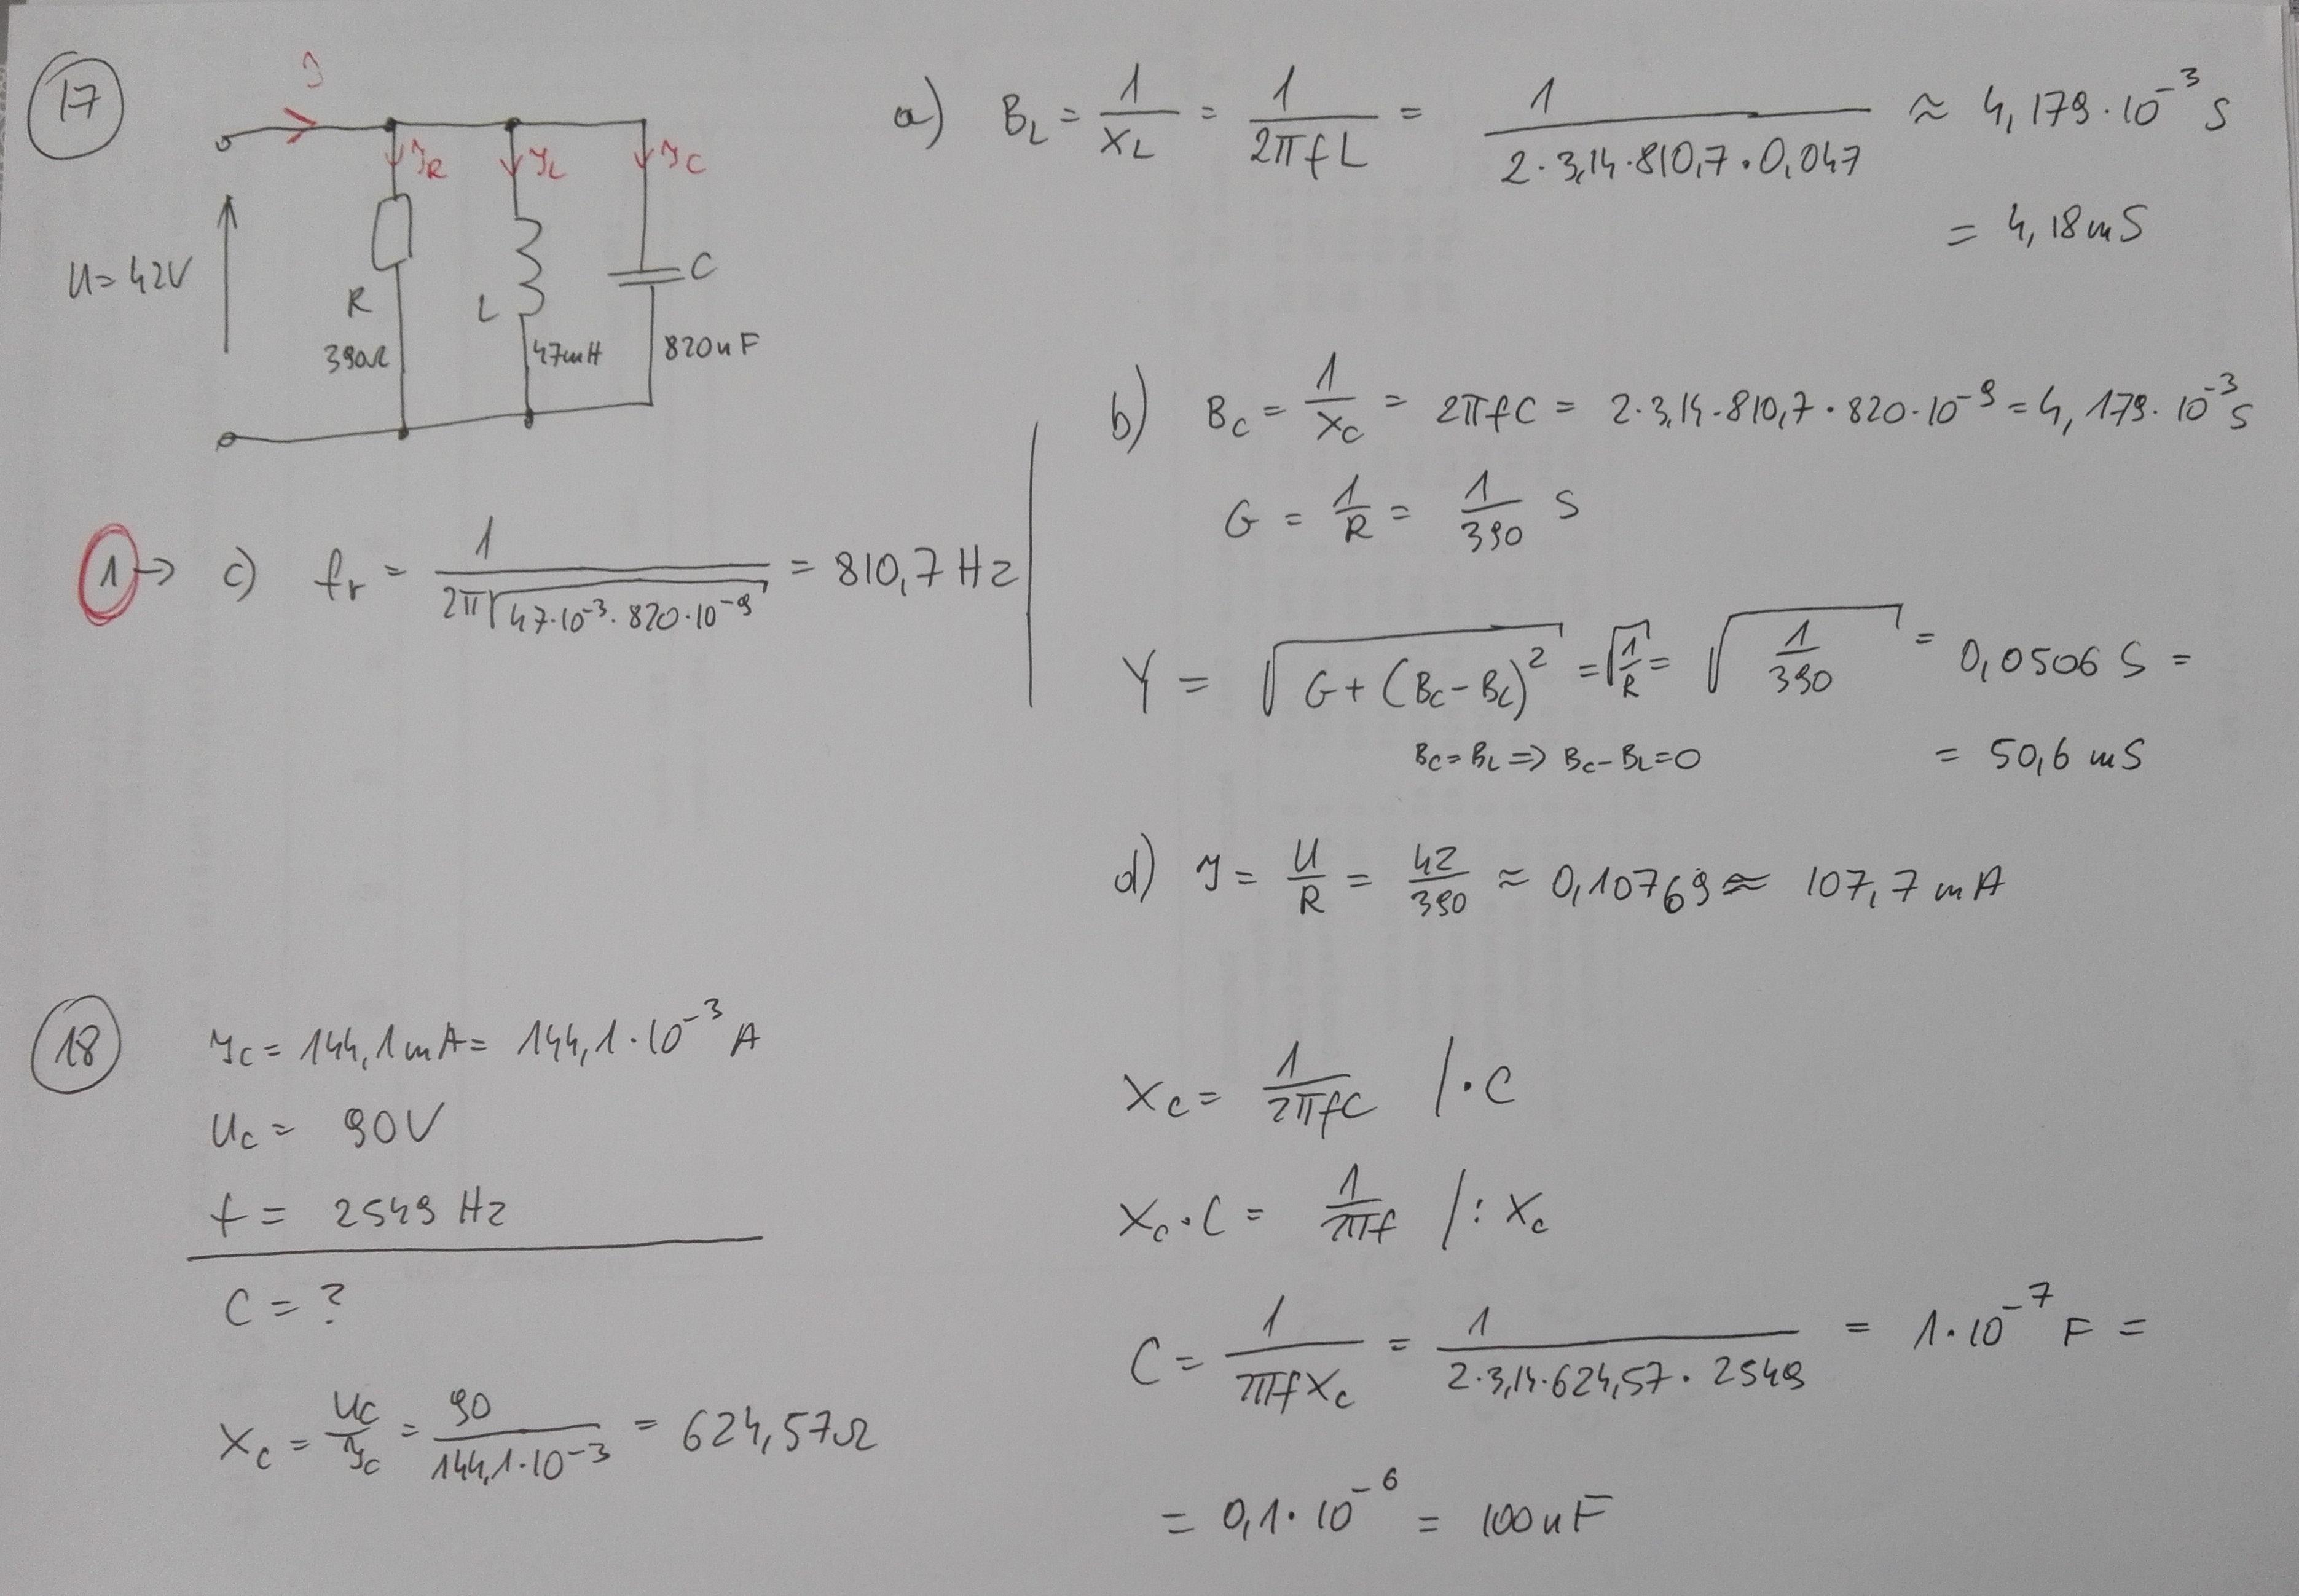 17
I
I_R I_L I_C
U = 42V
R
390Ω
L
47mH
C
820nF
a) B_L = 1/X_L = 1/(2πfL) = 1/(2·3,14·810,7·0,047) ≈ 4,179·10^-3 S
= 4,18mS
b) B_C = 1/X_C = 2πfC = 2·3,14·810,7·820·10^-9 = 4,179·10^-3 S
G = 1/R = 1/390 S
1 → c) fr = 1/(2π√(47·10^-3·820·10^-9)) = 810,7 Hz
Y = √(G+(B_C-B_L)^2) = √(1/R) = √(1/390) = 0,0506 S =
B_C = B_L ⇒ B_C-B_L=0
= 50,6 mS
d) I = U/R = 42/390 ≈ 0,10769 ≈ 107,7 mA
18
I_C = 144,1mA = 144,1·10^-3 A
U_C = 90V
f = 2549 Hz
C = ?
X_C = U_C/I_C = 90/(144,1·10^-3) = 624,57Ω
X_C = 1/(2πfC) /·C
X_C·C = 1/(2πf) /: X_C
C = 1/(2πfX_C) = 1/(2·3,14·624,57·2549) = 1·10^-7 F =
= 0,1·10^-6 = 100nF